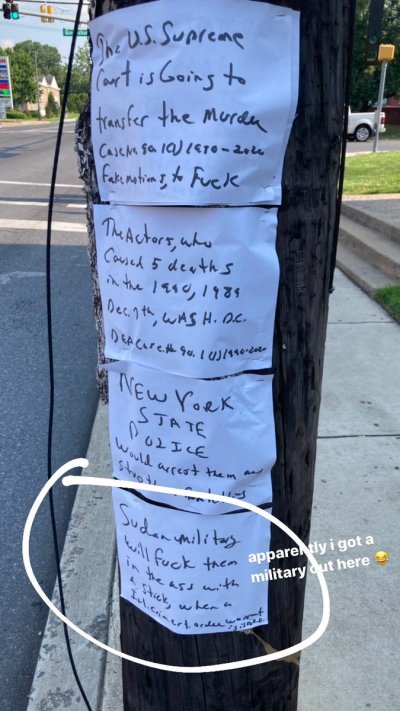 The U.S. Supreme
Court is Going to
transfer the Murder
Fake Motions, to Fuck
The Actors, who
Caused 5 deaths
in the 1990, 1989
Dec. 7th, WASH. D.C.
NEW YORK
STATE
POLICE
would arrest them and
Sudan military
will fuck them
in the ass with
a stick, when a
order warrant
apparently i got a
military out here 😂